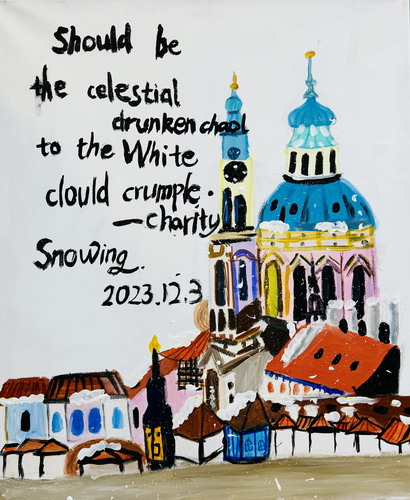 Should be
the celestial
drunken chaol
to the White
clould crumple.
—charity
Snowing.
2023.12.3